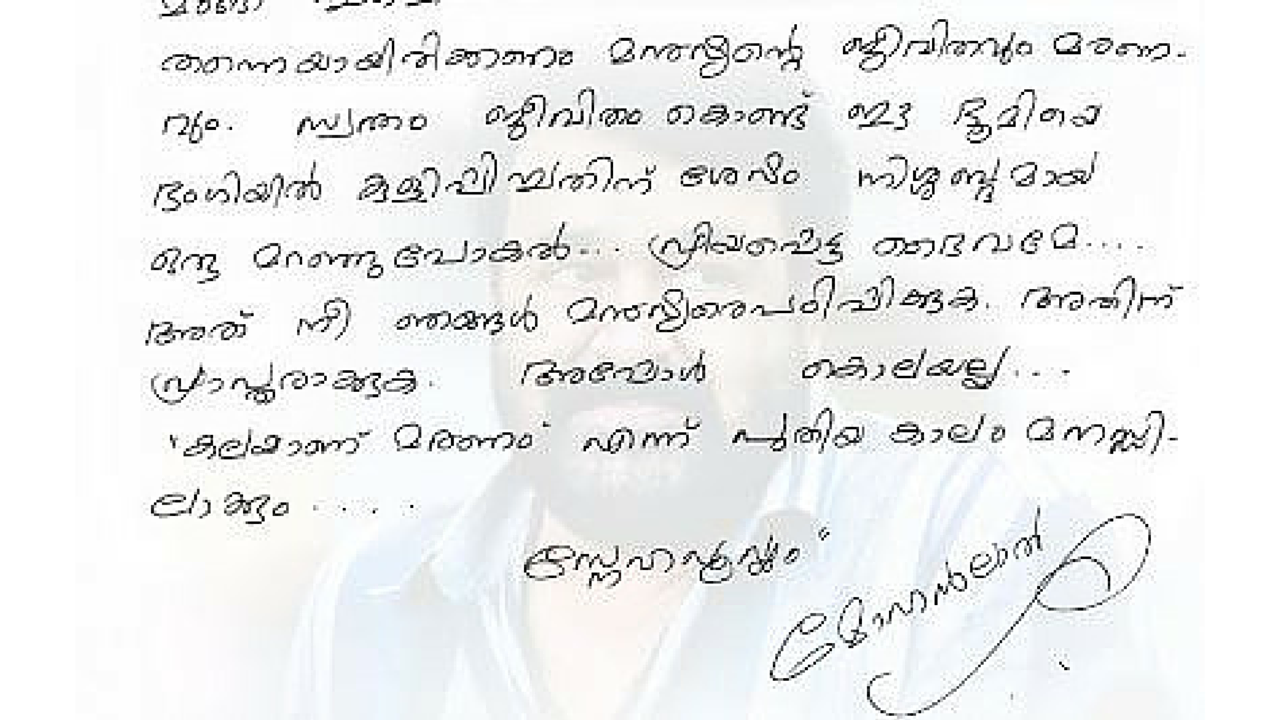 തന്നെയായിരിക്കണം മനുഷ്യന്റെ ജീവിതവും മരണ-
വും. സ്വന്തം ജീവിതം കൊണ്ട് ഈ ഭൂമിയെ
ഭംഗിയിൽ കുളിപ്പിച്ചതിന് ശേഷം നിശ്ശബ്ദമായ
ഒരു മറഞ്ഞുപോകൽ... പ്രിയപ്പെട്ട ദൈവമേ....
അത് നീ ഞങ്ങൾ മനുഷ്യരെപഠിപ്പിക്കുക. അതിന്
പ്രാപ്തരാക്കുക. അപ്പോൾ കൊലയല്ല...
'കലയാണ് മരണം' എന്ന് പുതിയ കാലം മനസ്സി-
ലാക്കും ....
സ്നേഹപൂർവ്വം"
മോഹൻലാൽ